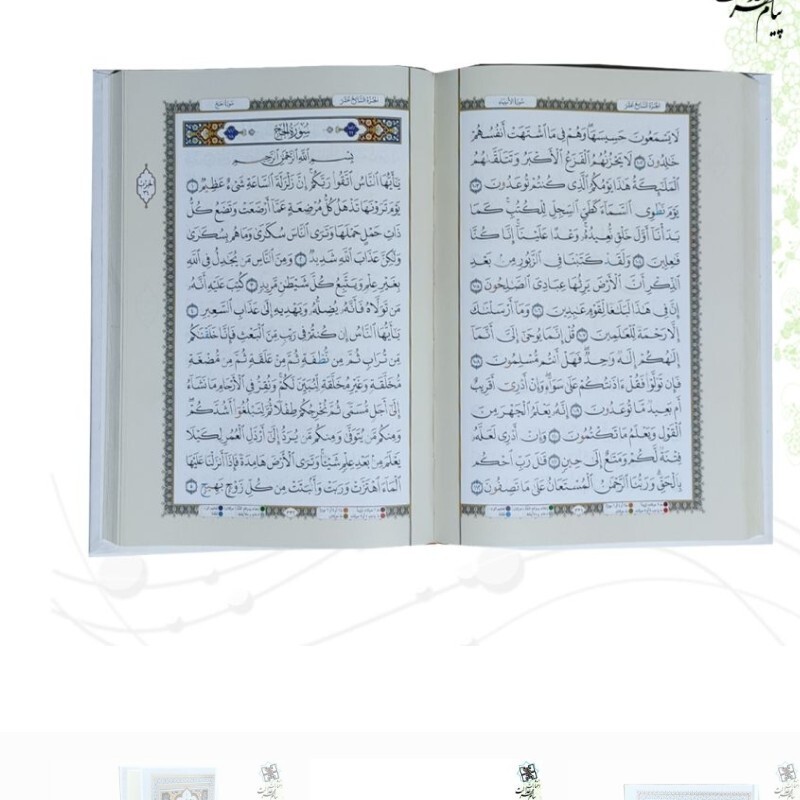 پیام
الجزء السابع عشر
سورة الأنبياء
لَا يَسْمَعُونَ حَسِيسَهَا وَهُمْ فِي مَا اشْتَهَتْ أَنفُسُهُمْ
خَٰلِدُونَ ١٠٢ لَا يَحْزُنُهُمُ الْفَزَعُ الْأَكْبَرُ وَتَتَلَقَّىٰهُمُ
الْمَلَٰٓئِكَةُ هَٰذَا يَوْمُكُمُ الَّذِي كُنتُمْ تُوعَدُونَ ١٠٣
يَوْمَ نَطْوِي السَّمَآءَ كَطَيِّ السِّجِلِّ لِلْكُتُبِ كَمَا
بَدَأْنَآ أَوَّلَ خَلْقٍ نُّعِيدُهُۥ وَعْدًا عَلَيْنَآ إِنَّا كُنَّا
فَٰعِلِينَ ١٠٤ وَلَقَدْ كَتَبْنَا فِي الزَّبُورِ مِن بَعْدِ
الذِّكْرِ أَنَّ الْأَرْضَ يَرِثُهَا عِبَادِيَ الصَّٰلِحُونَ ١٠٥
إِنَّ فِي هَٰذَا لَبَلَٰغًا لِّقَوْمٍ عَٰبِدِينَ ١٠٦ وَمَآ أَرْسَلْنَٰكَ
إِلَّا رَحْمَةً لِّلْعَٰلَمِينَ ١٠٧ قُلْ إِنَّمَا يُوحَىٰٓ إِلَيَّ أَنَّمَآ
إِلَٰهُكُمْ إِلَٰهٌ وَٰحِدٌ فَهَلْ أَنتُم مُّسْلِمُونَ ١٠٨
فَإِن تَوَلَّوْا فَقُلْ ءَاذَنتُكُمْ عَلَىٰ سَوَآءٍ وَإِنْ أَدْرِيٓ أَقَرِيبٌ
أَم بَعِيدٌ مَّا تُوعَدُونَ ١٠٩ إِنَّهُۥ يَعْلَمُ الْجَهْرَ مِنَ
الْقَوْلِ وَيَعْلَمُ مَا تَكْتُمُونَ ١١٠ وَإِنْ أَدْرِي لَعَلَّهُۥ
فِتْنَةٌ لَّكُمْ وَمَتَٰعٌ إِلَىٰ حِينٍ ١١١ قَٰلَ رَبِّ احْكُم
بِالْحَقِّ وَرَبُّنَا الرَّحْمَٰنُ الْمُسْتَعَانُ عَلَىٰ مَا تَصِفُونَ ١١٢
الجزء السابع عشر
سورة حج
سُورَةُ الْحَجِّ
بِسْمِ اللَّهِ الرَّحْمَٰنِ الرَّحِيمِ
يَٰٓأَيُّهَا النَّاسُ اتَّقُوا رَبَّكُمْ إِنَّ زَلْزَلَةَ السَّاعَةِ شَيْءٌ عَظِيمٌ ١
يَوْمَ تَرَوْنَهَا تَذْهَلُ كُلُّ مُرْضِعَةٍ عَمَّآ أَرْضَعَتْ وَتَضَعُ كُلُّ
ذَاتِ حَمْلٍ حَمْلَهَا وَتَرَى النَّاسَ سُكَٰرَىٰ وَمَا هُم بِسُكَٰرَىٰ
وَلَٰكِنَّ عَذَابَ اللَّهِ شَدِيدٌ ٢ وَمِنَ النَّاسِ مَن يُجَٰدِلُ فِي اللَّهِ
بِغَيْرِ عِلْمٍ وَيَتَّبِعُ كُلَّ شَيْطَٰنٍ مَّرِيدٍ ٣ كُتِبَ عَلَيْهِ أَنَّهُۥ
مَن تَوَلَّاهُ فَأَنَّهُۥ يُضِلُّهُۥ وَيَهْدِيهِ إِلَىٰ عَذَابِ السَّعِيرِ ٤
يَٰٓأَيُّهَا النَّاسُ إِن كُنتُمْ فِي رَيْبٍ مِّنَ الْبَعْثِ فَإِنَّا خَلَقْنَٰكُم
مِّن تُرَابٍ ثُمَّ مِن نُّطْفَةٍ ثُمَّ مِنْ عَلَقَةٍ ثُمَّ مِن مُّضْغَةٍ
مُّخَلَّقَةٍ وَغَيْرِ مُخَلَّقَةٍ لِّنُبَيِّنَ لَكُمْ وَنُقِرُّ فِي الْأَرْحَامِ مَا نَشَآءُ
إِلَىٰٓ أَجَلٍ مُّسَمًّى ثُمَّ نُخْرِجُكُمْ طِفْلًا ثُمَّ لِتَبْلُغُوٓا أَشُدَّكُمْ
وَمِنكُم مَّن يُتَوَفَّىٰ وَمِنكُم مَّن يُرَدُّ إِلَىٰٓ أَرْذَلِ الْعُمُرِ لِكَيْلَا
يَعْلَمَ مِن بَعْدِ عِلْمٍ شَيْئًا وَتَرَى الْأَرْضَ هَامِدَةً فَإِذَآ أَنزَلْنَا عَلَيْهَا
الْمَآءَ اهْتَزَّتْ وَرَبَتْ وَأَنبَتَتْ مِن كُلِّ زَوْجٍ بَهِيجٍ ٥